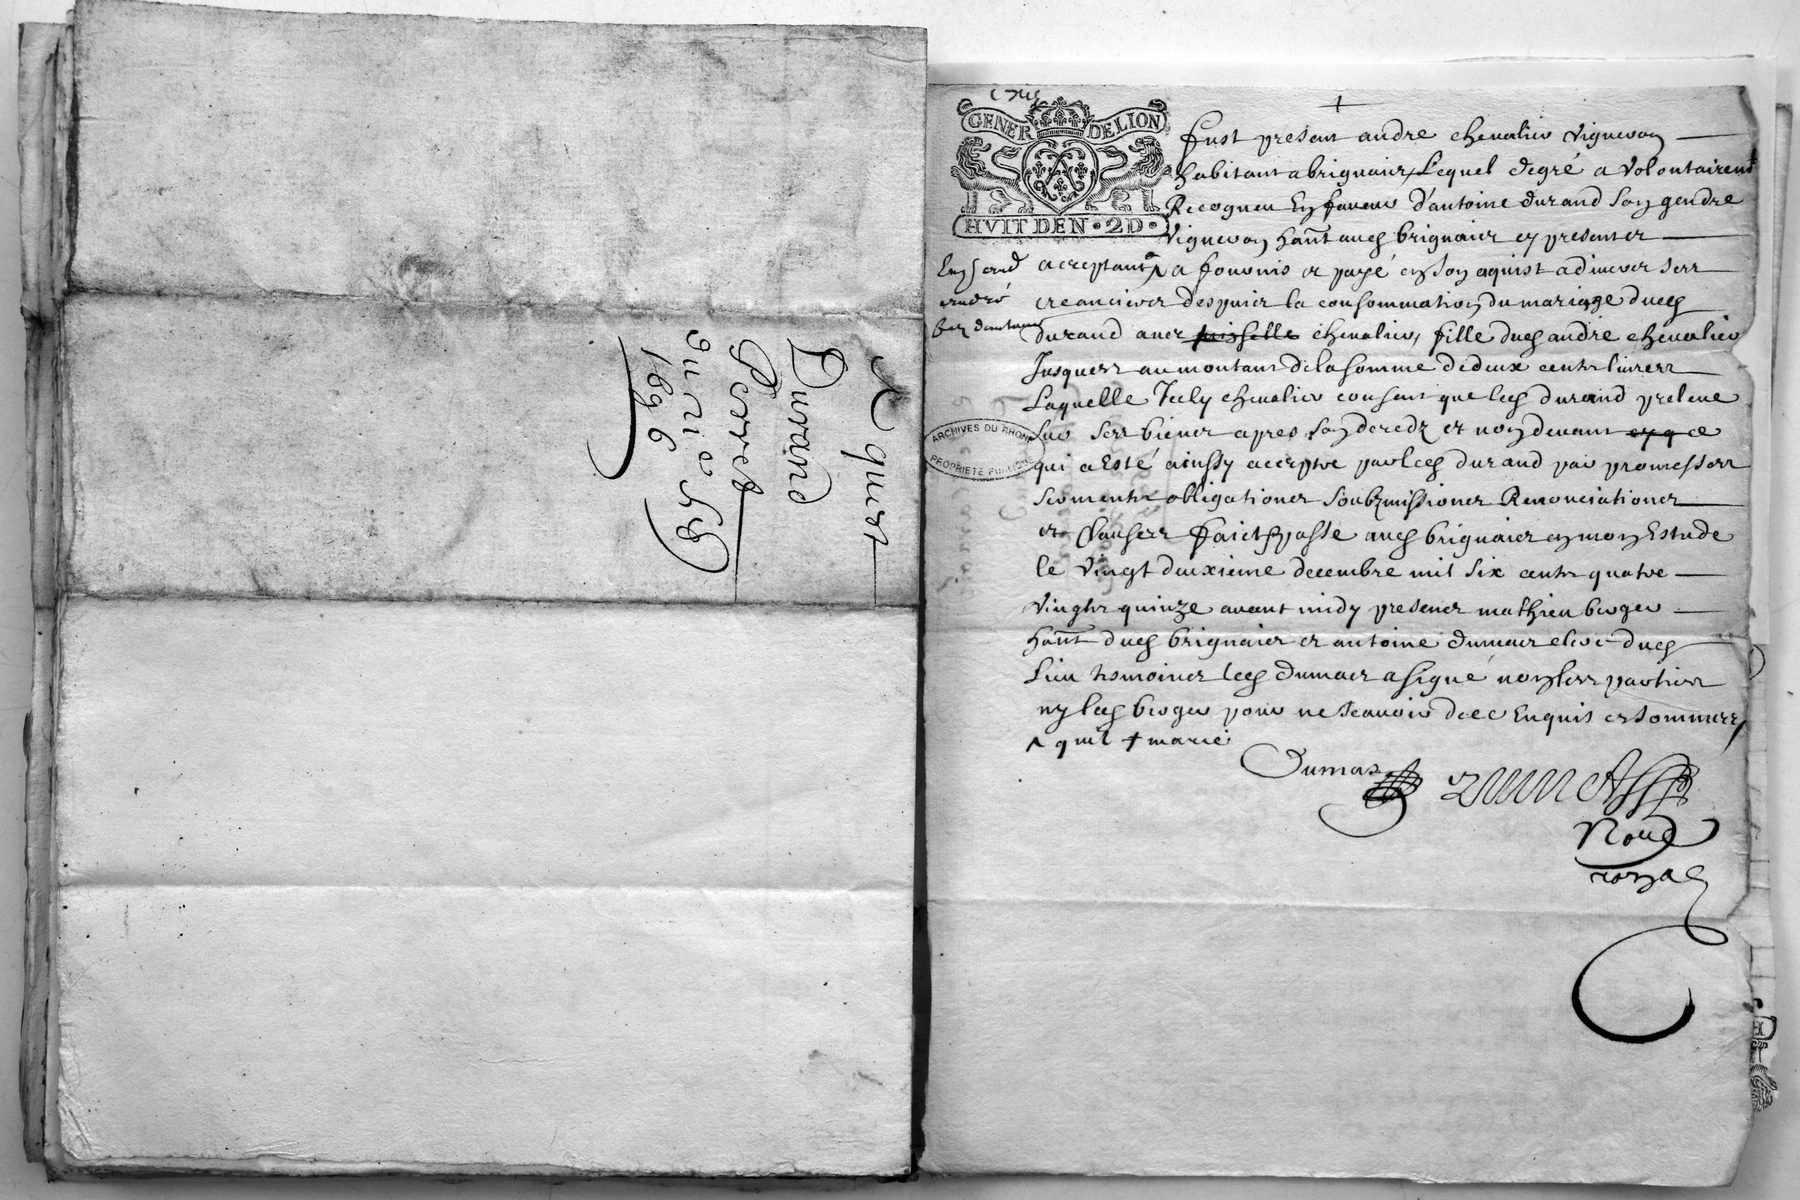 Aquest
Durand
Perret
1696
GENER DE LION
HVIT DEN · 2D ·
fust present andre chevalier vigneron
habitant a brignaix, Lequel de gré a volontairemt
Recogneu En faveur d'antoine durand son gendre
vigneron hant aud brignaix cy present et
acceptant ^ a fourni et payé en son aquist a divers ses
creanciers despuis la consommation du mariage dud
durand avec chevalier, fille dud andre chevalier
Jusques au montant de la somme de deux cents livres
Laquelle Icely chevalier consent que led durand preleve
sur ses biens apres son decedz et non devant ce
qui a Esté ainssy accepte par led durand par promesses
serments obligations soubzmissions Renonciations
et Clauses faict & passe aud brignaix en mon Estude
le vingt deuxieme decembre mil six cents quatre
vingts quinze avant midy presens mathieu broger
hant dud brignaix et antoine dumas clerc dud
Lieu tesmoins led dumas a signé non les parties
ny led broger pour ne scavoir de ce Enquis et sommes
^ qu'il + marie
ARCHIVES DU RHONE
PROPRIETE PUBLIQUE
Dumas
Nore
royal